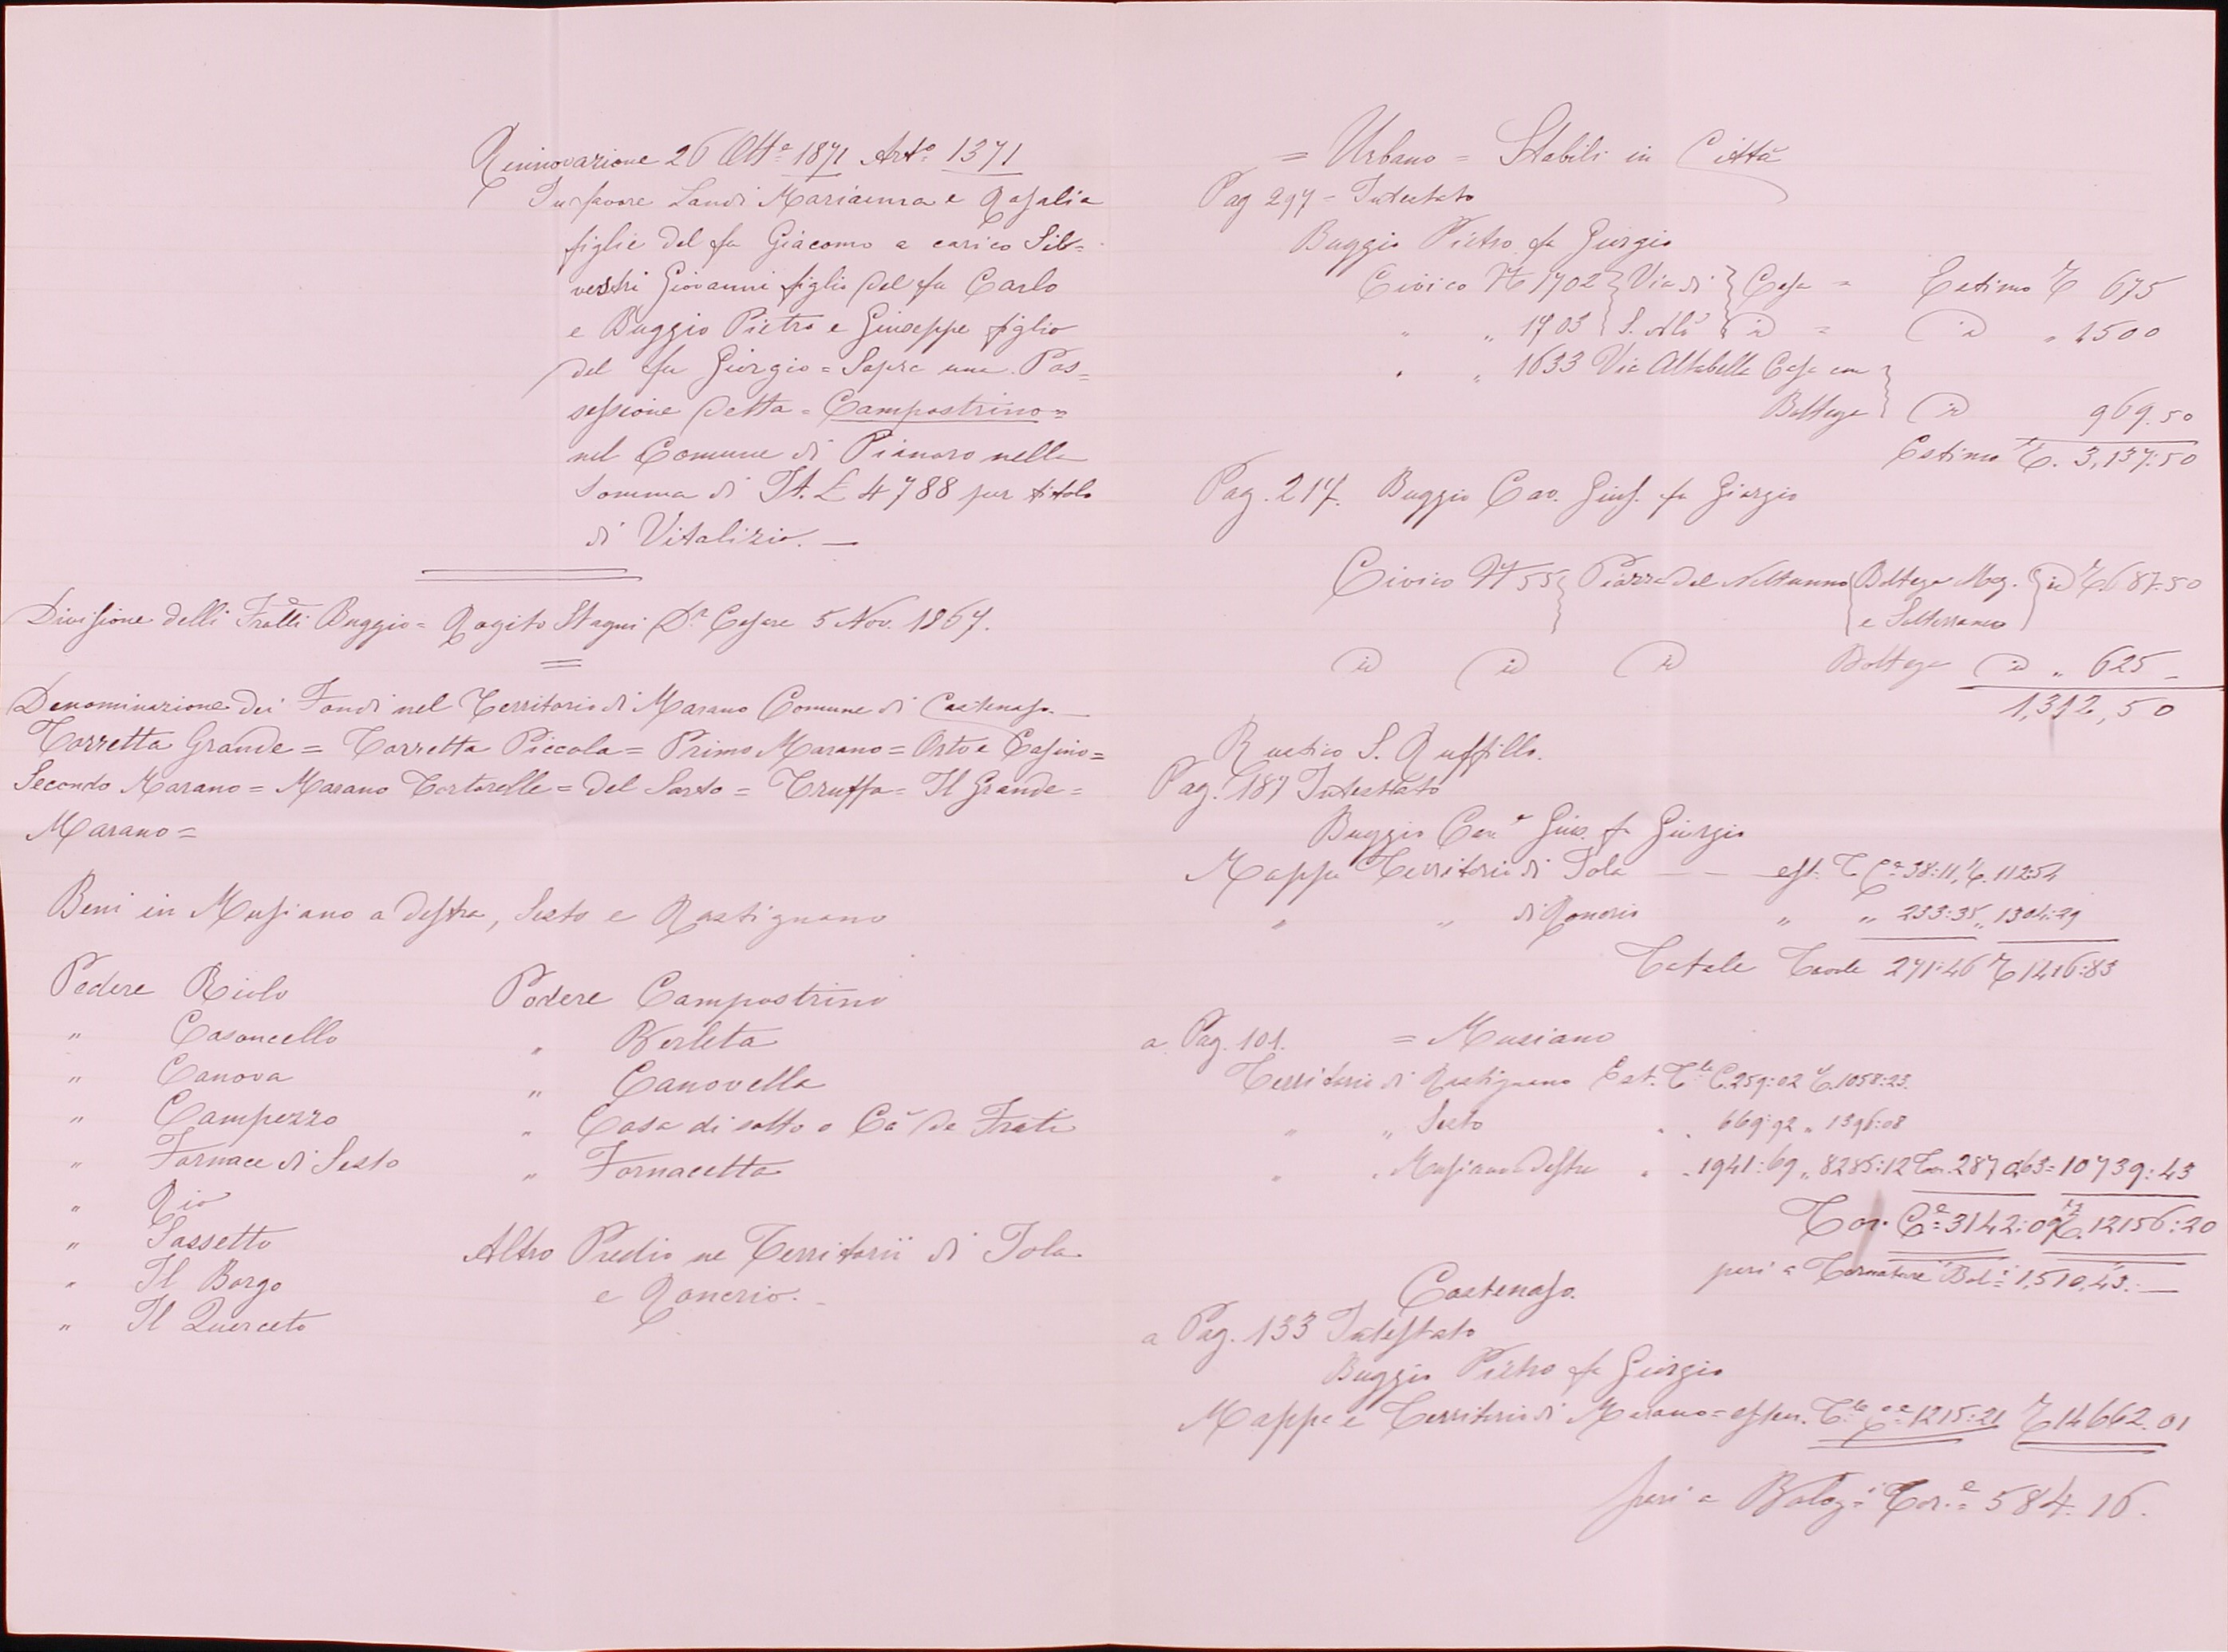 Rinnovazione 26 Ott.e 1871 Art.o 1371
In favore Landi Marianna e Rosalia
figlie del fu Giacomo a carico Sil=
vestri Giovanni figlio del fu Carlo
e Buggio Pietro e Giuseppe figlio
del fu Giorgio = Sopra una Pos=
sessione detta = Campostrino =
nel Comune di Pianoro nella
somma di It. £ 4788 per titolo
di Vitalizio. —
Divisione delli Fratelli Buggio = Rogito Stagni D.r Cesare 5 Nov. 1867.
Denominazione dei Fondi nel Territorio di Marano Comune di Castenaso —
Torretta Grande = Torretta Piccola = Primo Marano = Orto e Casino =
Secondo Marano = Marano Tortorelle = Del Sarto = Truffa = Il Grande =
Marano =
Beni in Musiano a destra, Sesto e Rastignano
Podere Riolo
" Casoncello
" Canova
" Campezzo
" Fornace di Sesto
" Rio
" Sassetto
" Il Borgo
" Il Querceto
Podere Campostrino
" Berleta
" Canovella
" Casa di sotto o Cà de Frati
" Fornacetta
Altro Predio ne Territorii di Jola
e Roncrio. —
= Urbano = Stabili in Città
Pag 297 - Intestato
Buggio Pietro fu Giorgio
Civico N 1702 } Via di } Casa = Estimo 675
" " 1703 } S. Alò } id = id " 1500
" " 1633 Via Altabella Casa con
Bottega } id 969.50
Estimo 3,137:50
Pag. 217. Buggio Cav. Gius. fu Giorgio
Civico N 55 } Piazza del Nettunno { Bottega Mag. } id 687.50
e Sotterraneo
id id id Bottega id " 625 —
1,312,50
Rustico S. Ruffillo.
Pag. 187 Intestato
Buggio Cav.e Gius. fu Giorgio
Mappa Territorii di Jola — — est. T. C.e 38:11, 112:54
" " di Roncrio " " 233:35 " 1304:29
Totale Tavole 271:46 1416:83
a Pag. 101. = Musiano
Territorii di Rastignano Est. T.le C. 259:02 1058:23.
" " Sesto " " 669:92 " 1396:08
" " Musiano destra " " 1941:69 " 8285:12 2870:63 = 10739:43
C.e 3142:09 12156:20
pari a Tornature Bol.i 1,510,43. —
Castenaso.
a Pag. 133 Intestato
Buggio Pietro fu Giorgio
Mappa e Territorio di Marano = esten. T.le C.e 1215:21 14662.01
pari a Bolog.i Tor.e = 584.16.